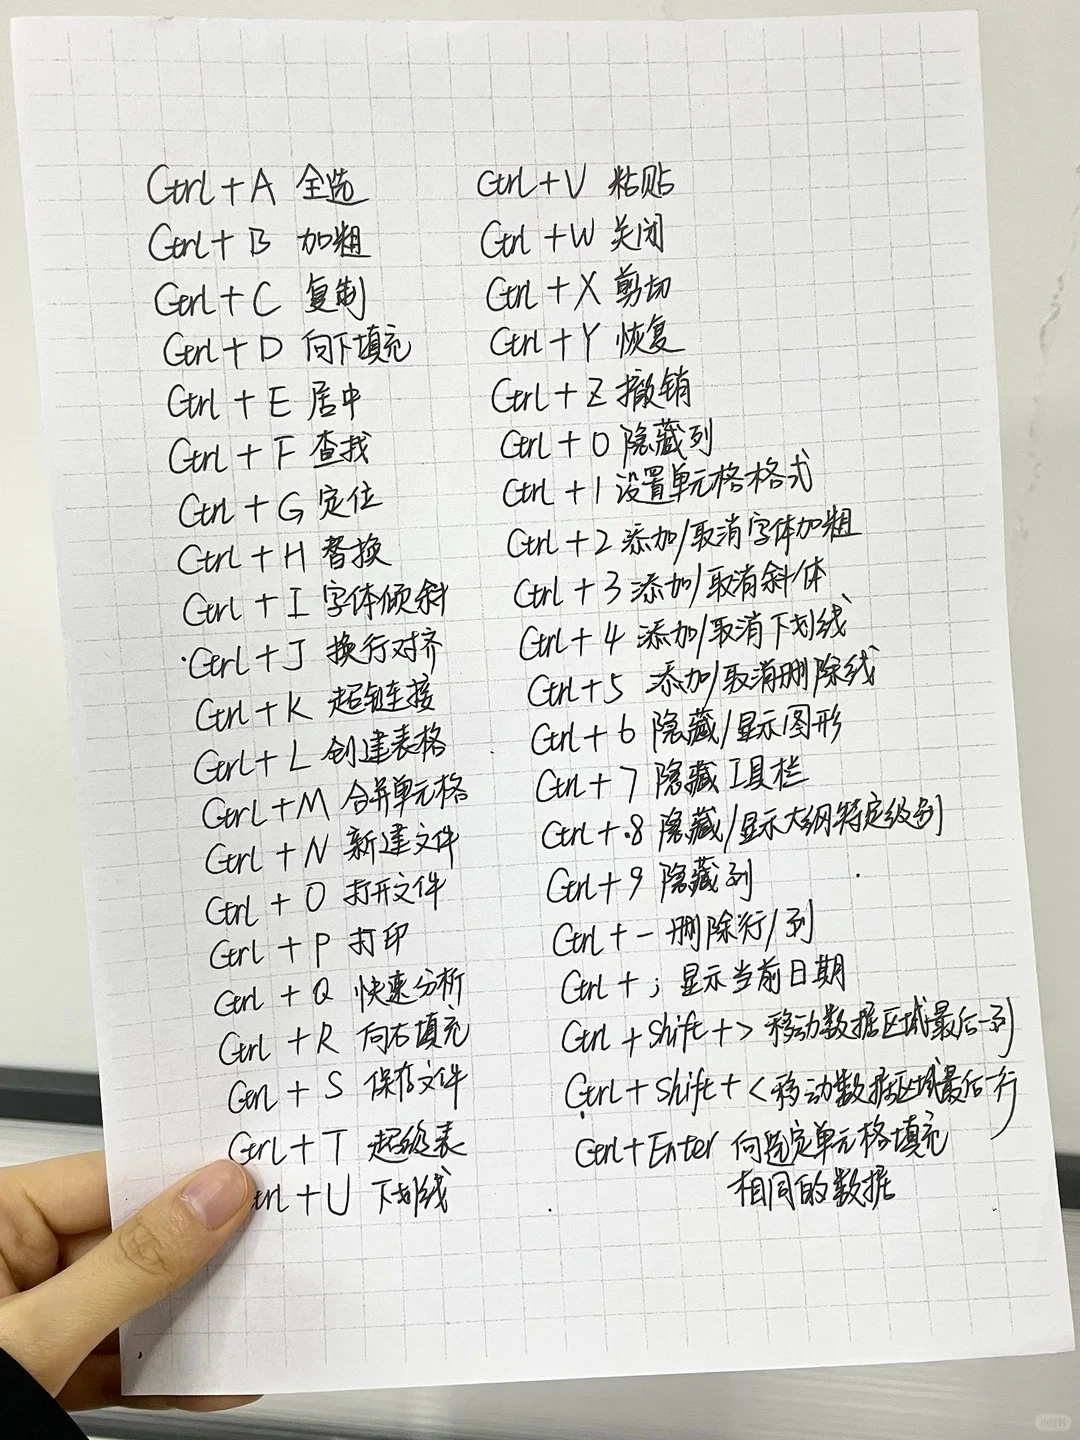 Ctrl + A 全选
Ctrl + B 加粗
Ctrl + C 复制
Ctrl + D 向下填充
Ctrl + E 居中
Ctrl + F 查找
Ctrl + G 定位
Ctrl + H 替换
Ctrl + I 字体倾斜
Ctrl + J 换行对齐
Ctrl + K 超链接
Ctrl + L 创建表格
Ctrl + M 合并单元格
Ctrl + N 新建文件
Ctrl + O 打开文件
Ctrl + P 打印
Ctrl + Q 快速分析
Ctrl + R 向右填充
Ctrl + S 保存文件
Ctrl + T 超级表
trl + U 下划线
Ctrl + V 粘贴
Ctrl + W 关闭
Ctrl + X 剪切
Ctrl + Y 恢复
Ctrl + Z 撤销
Ctrl + 0 隐藏列
Ctrl + 1 设置单元格格式
Ctrl + 2 添加/取消字体加粗
Ctrl + 3 添加/取消斜体
Ctrl + 4 添加/取消下划线
Ctrl + 5 添加/取消删除线
Ctrl + 6 隐藏/显示图形
Ctrl + 7 隐藏工具栏
Ctrl + 8 隐藏/显示大纲特定级别
Ctrl + 9 隐藏列
Ctrl + - 删除行/列
Ctrl + ; 显示当前日期
Ctrl + Shift + > 移动数据区域最后一列
Ctrl + Shift + < 移动数据区域最后一行
Ctrl + Enter 向选定单元格填充
相同的数据
小红书